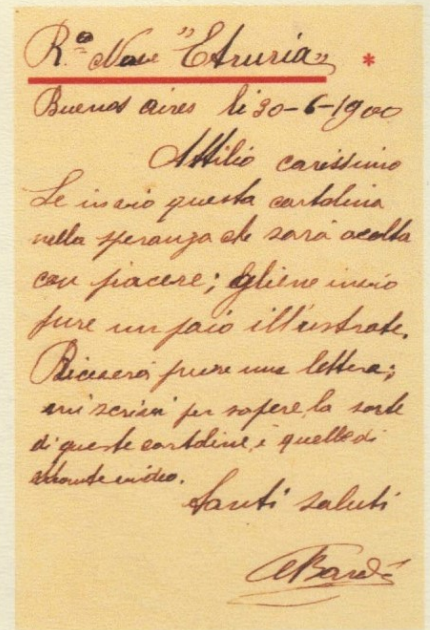 R.ª Nave "Etruria" *
Buenos Aires li 30-6-1900
Attilio carissimo
Le invio questa cartolina
nella speranza che sarà acolta
con piacere; gliene invio
pure un paio illustrate.
Riceverà pure una lettera;
mi scrivi per sapere la sorte
di queste cartoline, e quelle di
Montevideo.
Tanti saluti